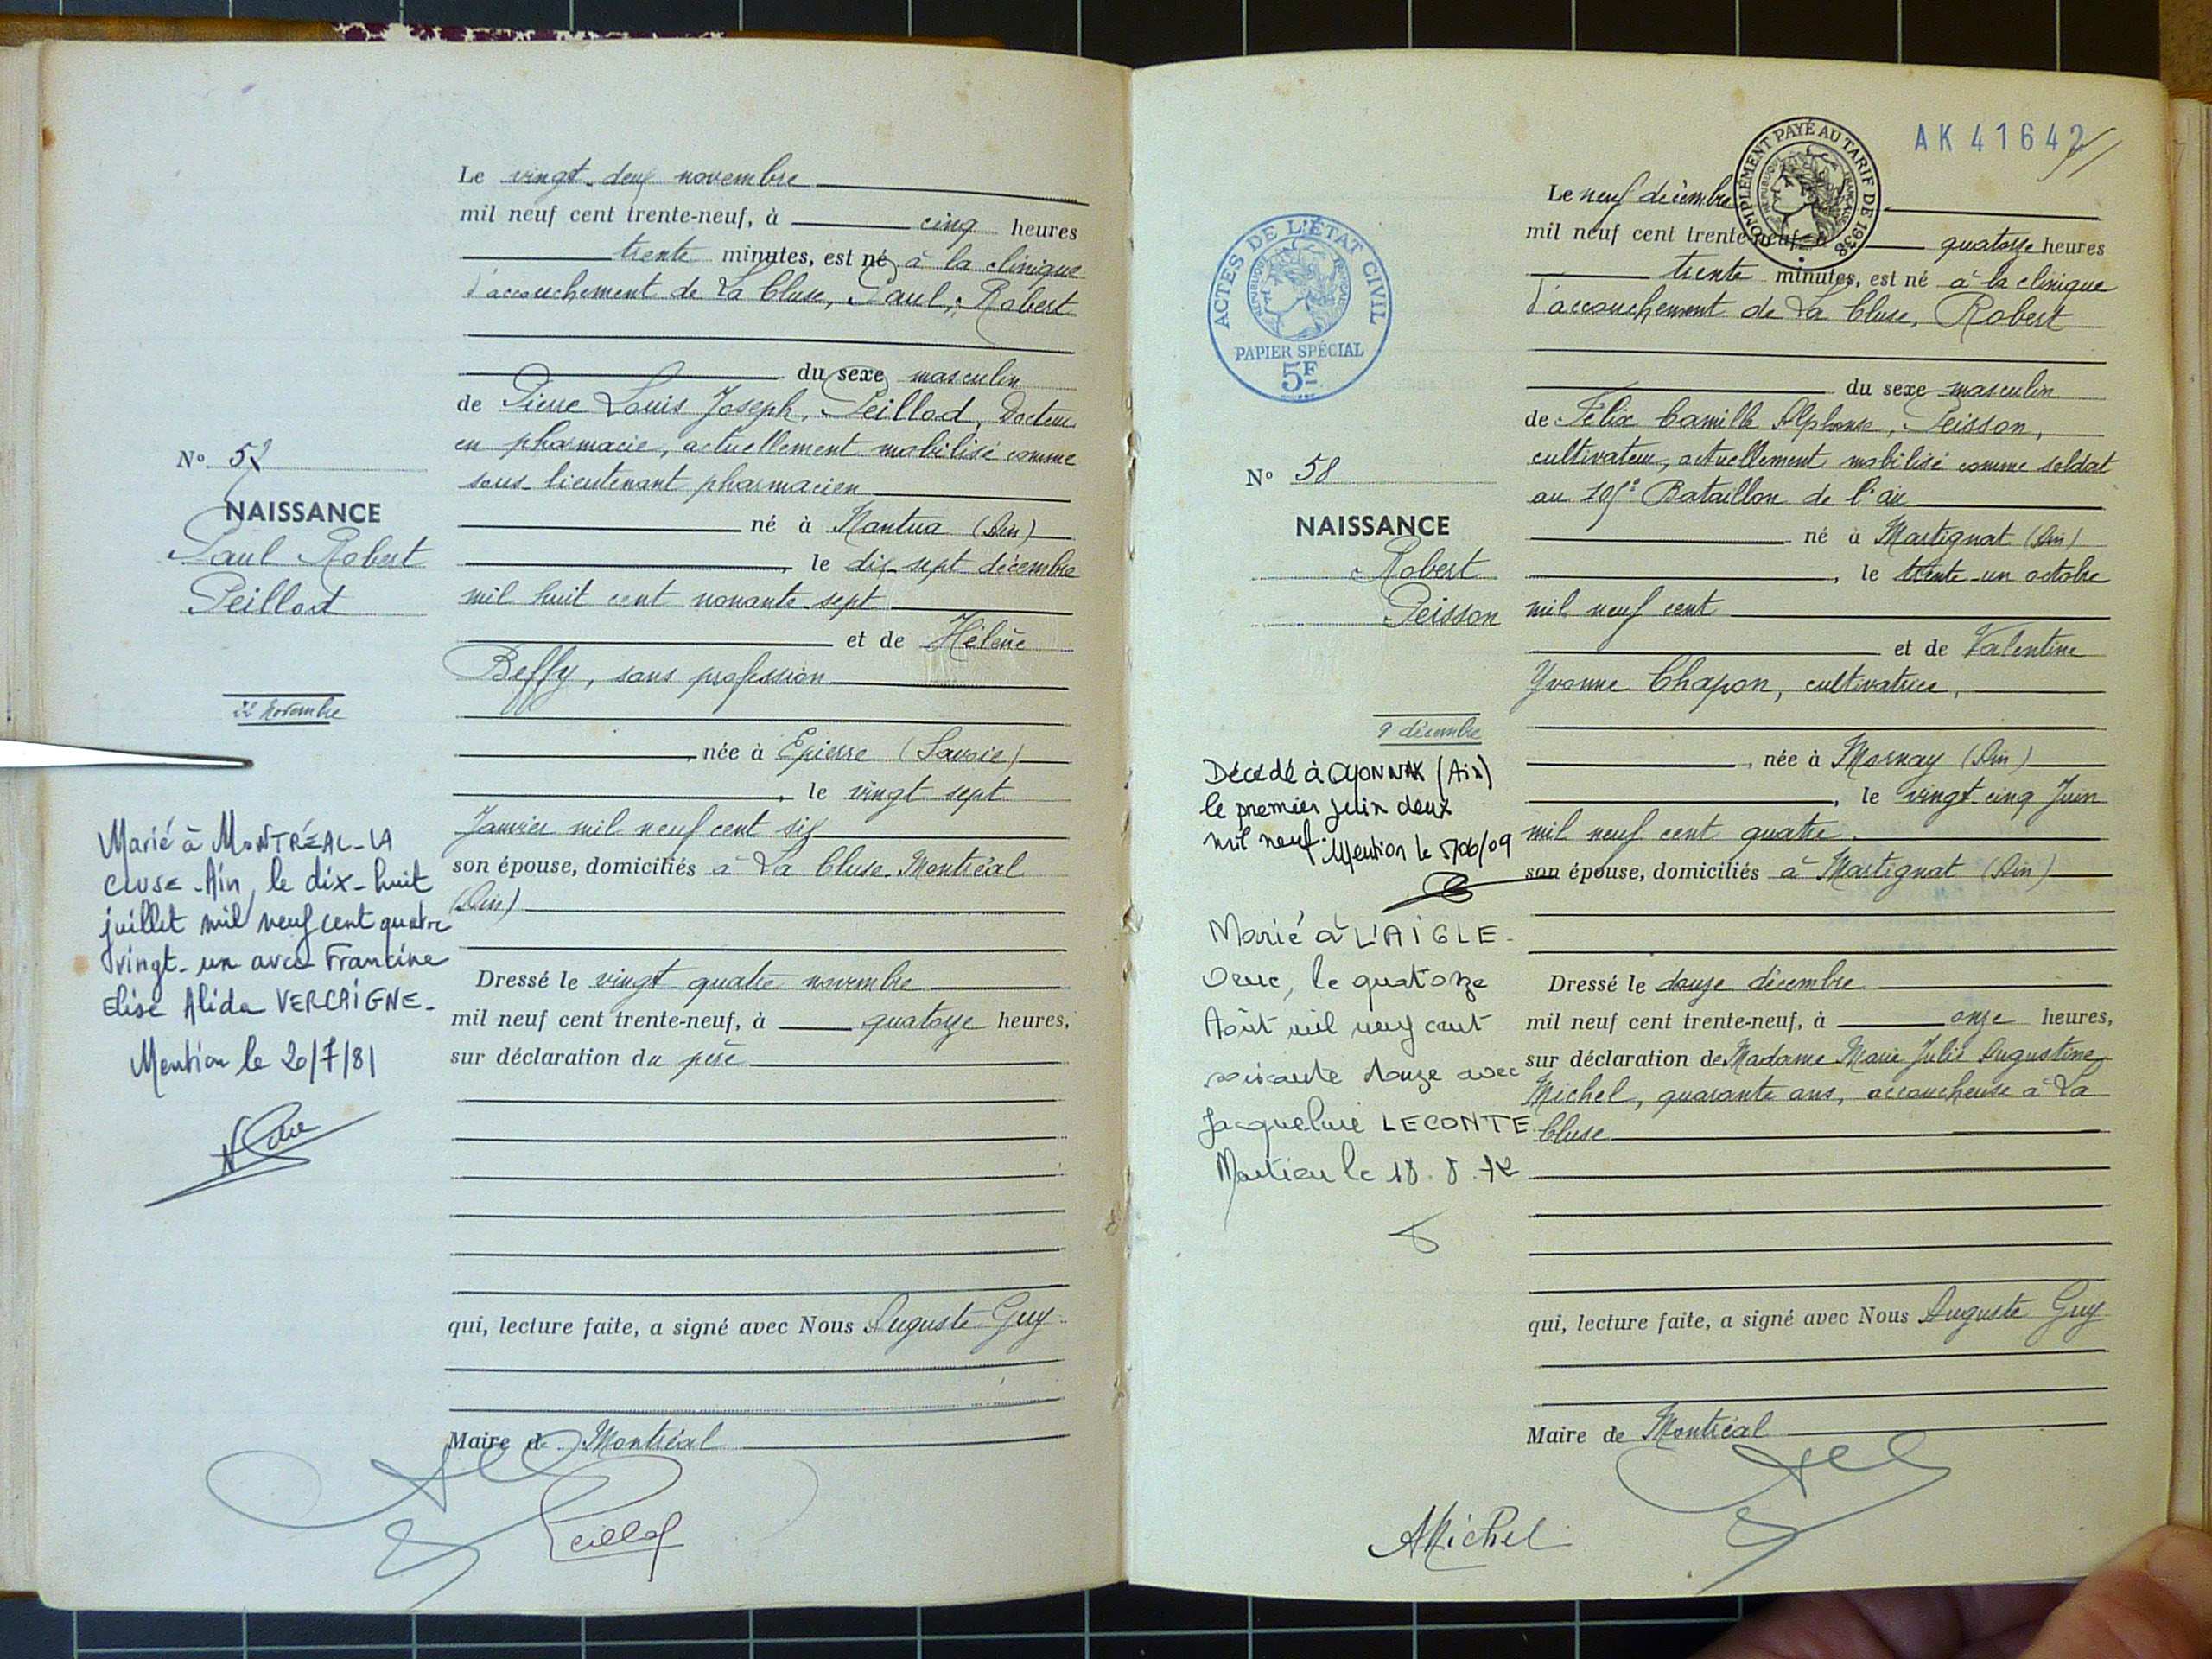 Le vingt-deux novembre
mil neuf cent trente-neuf, à cinq heures
trente minutes, est né à la clinique
d'accouchement de La Cluse, Paul, Robert
du sexe masculin
de Pierre Louis Joseph, Peillod, Docteur
en pharmacie, actuellement mobilisé comme
sous-lieutenant pharmacien
né à Nantua (Ain)
, le dix-sept décembre
mil huit cent nonante-sept
et de Hélène
Beffy, sans profession
, née à Epierre (Savoie)
, le vingt-sept
Janvier mil neuf cent six
son épouse, domiciliés à La Cluse-Montréal
(Ain)
Dressé le vingt-quatre novembre
mil neuf cent trente-neuf, à quatorze heures,
sur déclaration du père
qui, lecture faite, a signé avec Nous Auguste Guy
Maire de Montréal
Peillod
N° 57
NAISSANCE
Paul Robert
Peillod
22 Novembre
Marié à MONTRÉAL-LA
CLUSE-Ain, le dix-huit
juillet mil neuf cent quatre
vingt-un avec Francine
Elise Alida VERCAIGNE-
Mention le 20/7/81
AK 41642
COMPLÉMENT PAYÉ AU TARIF DE 1938
RÉPUBLIQUE FRANÇAISE
Le neuf décembre
mil neuf cent trente-neuf, à quatorze heures
trente minutes, est né à la clinique
d'accouchement de La Cluse, Robert
du sexe masculin
de Félix Camille Alphonse, Peisson,
cultivateur, actuellement mobilisé comme soldat
au Bataillon de l'air
né à Martignat (Ain)
, le trente-un octobre
mil neuf cent
et de Valentine
Yvonne Chapon, cultivatrice,
, née à Mornay (Ain)
, le vingt-cinq Juin
mil neuf cent quatre.
son épouse, domiciliés à Martignat (Ain)
Dressé le douze décembre
mil neuf cent trente-neuf, à onze heures,
sur déclaration de Madame Marie Julie Augustine
Michel, quarante ans, accoucheuse à La
Cluse
qui, lecture faite, a signé avec Nous Auguste Guy
Maire de Montréal
AMichel
ACTES DE L'ÉTAT CIVIL
RÉPUBLIQUE FRANÇAISE
PAPIER SPÉCIAL
5F
N° 58
NAISSANCE
Robert
Peisson
9 décembre
Décédé à OYONNAX (Ain)
le premier juin deux
mil neuf. Mention le 5/06/09
Marié à L'AIGLE-
Orne, le quatorze
Août mil neuf cent
soixante douze avec
Jacqueline LECONTE
Mention le 18.8.72